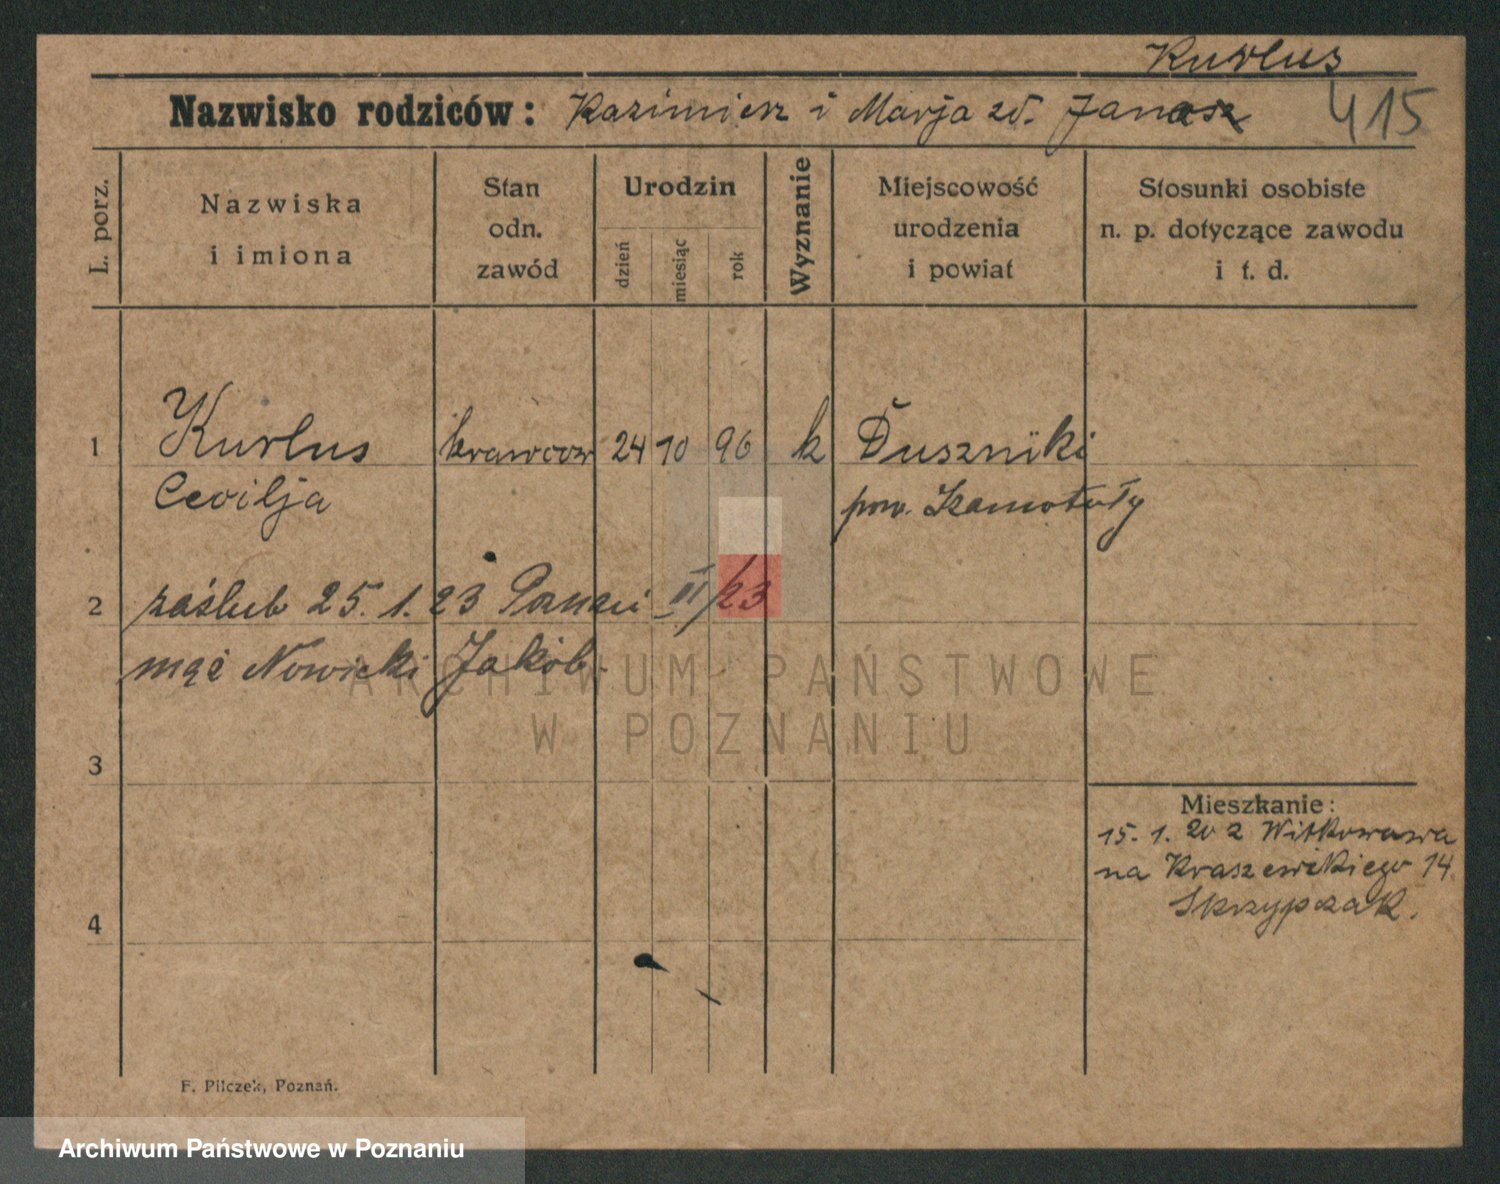 Kurlus
Nazwisko rodziców: Kazimierz i Marja zd. Janasz
415
L. porz.
Nazwiska
i imiona
Stan
odn.
zawód
Urodzin
dzień
miesiąc
rok
Wyznanie
Miejscowość
urodzenia
i powiat
Stosunki osobiste
n. p. dotyczące zawodu
i t. d.
1 Kurlus 24 10 96 k Duszniki
Cecilja pow. Szamotuły
2 zaślub 25. 1. 23 Poznań III/23
mąż Nowicki Jakób.
3
Mieszkanie:
15. 1. 20 z Witkowa
na Kraszewskiego 14
Skrzypczak.
4
F. Pilczek, Poznań.
ARCHIWUM PAŃSTWOWE
W POZNANIU
Archiwum Państwowe w Poznaniu